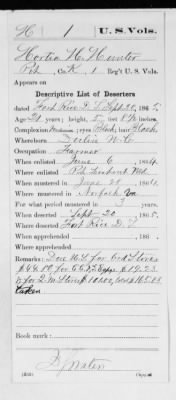 H | 1 | U. S. Vols.
H. Hunter
Pvt, Co. K, 1 Reg't U. S. Vols.
Appears on
Descriptive List of Deserters
dated Fort Rice D. T. Sept 20, 1865.
Age 21 years; height, 5 feet 8½ inches.
Complexion ; eyes Black; hair Black
Where born Duplin N. C.
Occupation Farmer
When enlisted June 6, 1864.
Where enlisted Pt. Lookout Md
When mustered in June 20, 186
Where mustered in Norfolk Va
For what period mustered in 3 years.
When deserted Sept 20, 1865.
Where deserted Fort Rice D. T.
When apprehended , 186 .
Where apprehended
Remarks: Due U. S. for Ord Stores
taken
Book mark:
Copyist.